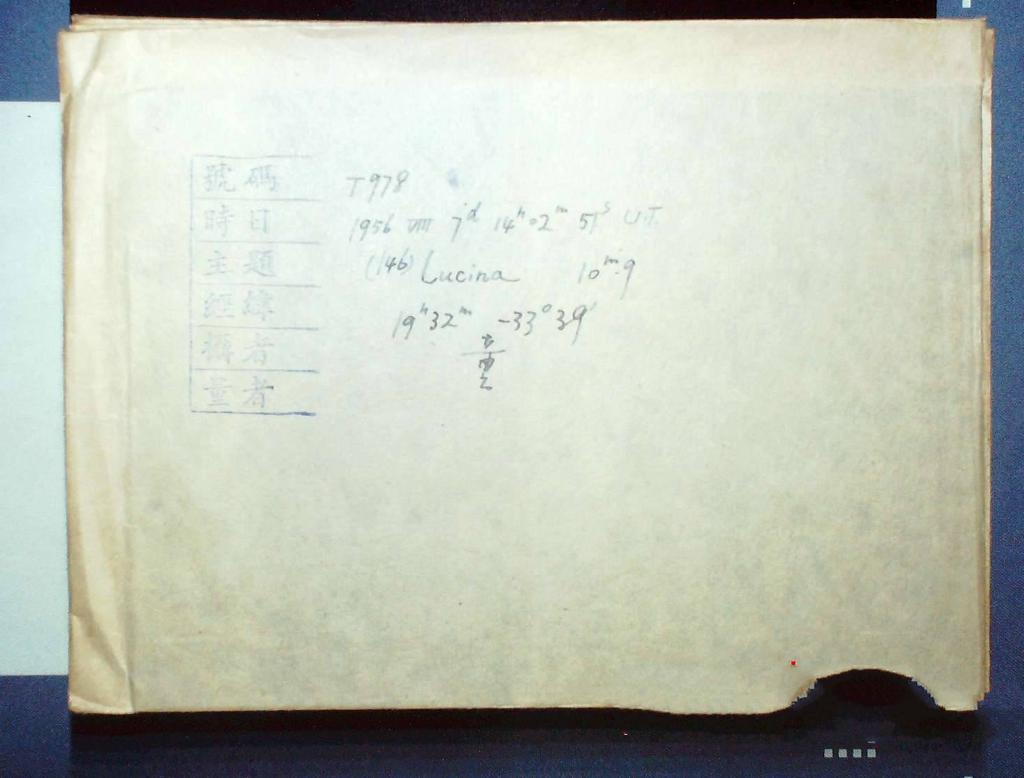 號碼 T978
時日 1956 VIII 7d 14h 02m 51s U.T.
主題 (146) Lucina 10m.9
經緯 19h32m -33°39'
攝者
量者